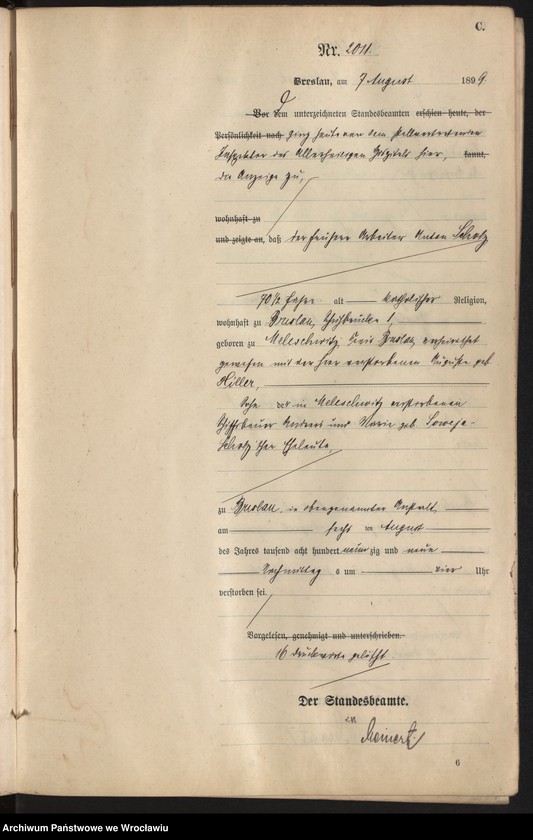 C.
Nr. 2011
Breslau, am 7 August 1899.
Vor dem unterzeichneten Standesbeamten erschien heute, der
Persönlichkeit nach ging heute von dem stellvertretenden
Inspektor des Allerheiligen Hospitals hier, kannt,
die Anzeige zu,
wohnhaft zu
und zeigte an, daß der frühere Arbeiter Anton Scholz
70 1/2 Jahre alt katholischer Religion,
wohnhaft zu Breslau, 1,
geboren zu Meleschwitz, Kreis Breslau, verheirathet
gewesen mit der hier verstorbenen Auguste geb.
Hiller,
Sohn der in Meleschwitz verstorbenen
Andreas und Marie geb.
Scholz'schen Eheleute,
zu Breslau, in obengenannter Anstalt,
am sechs ten August
des Jahres tausend acht hundert neunzig und neun
Nachmittags um vier Uhr
verstorben sei.
Vorgelesen, genehmigt und unterschrieben.
16 Druckworte gelöscht.
Der Standesbeamte.
6
Archiwum Państwowe we Wrocławiu